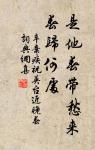 是他春带愁来
春归何处
辛弃疾祝英台近晚春
词典网集